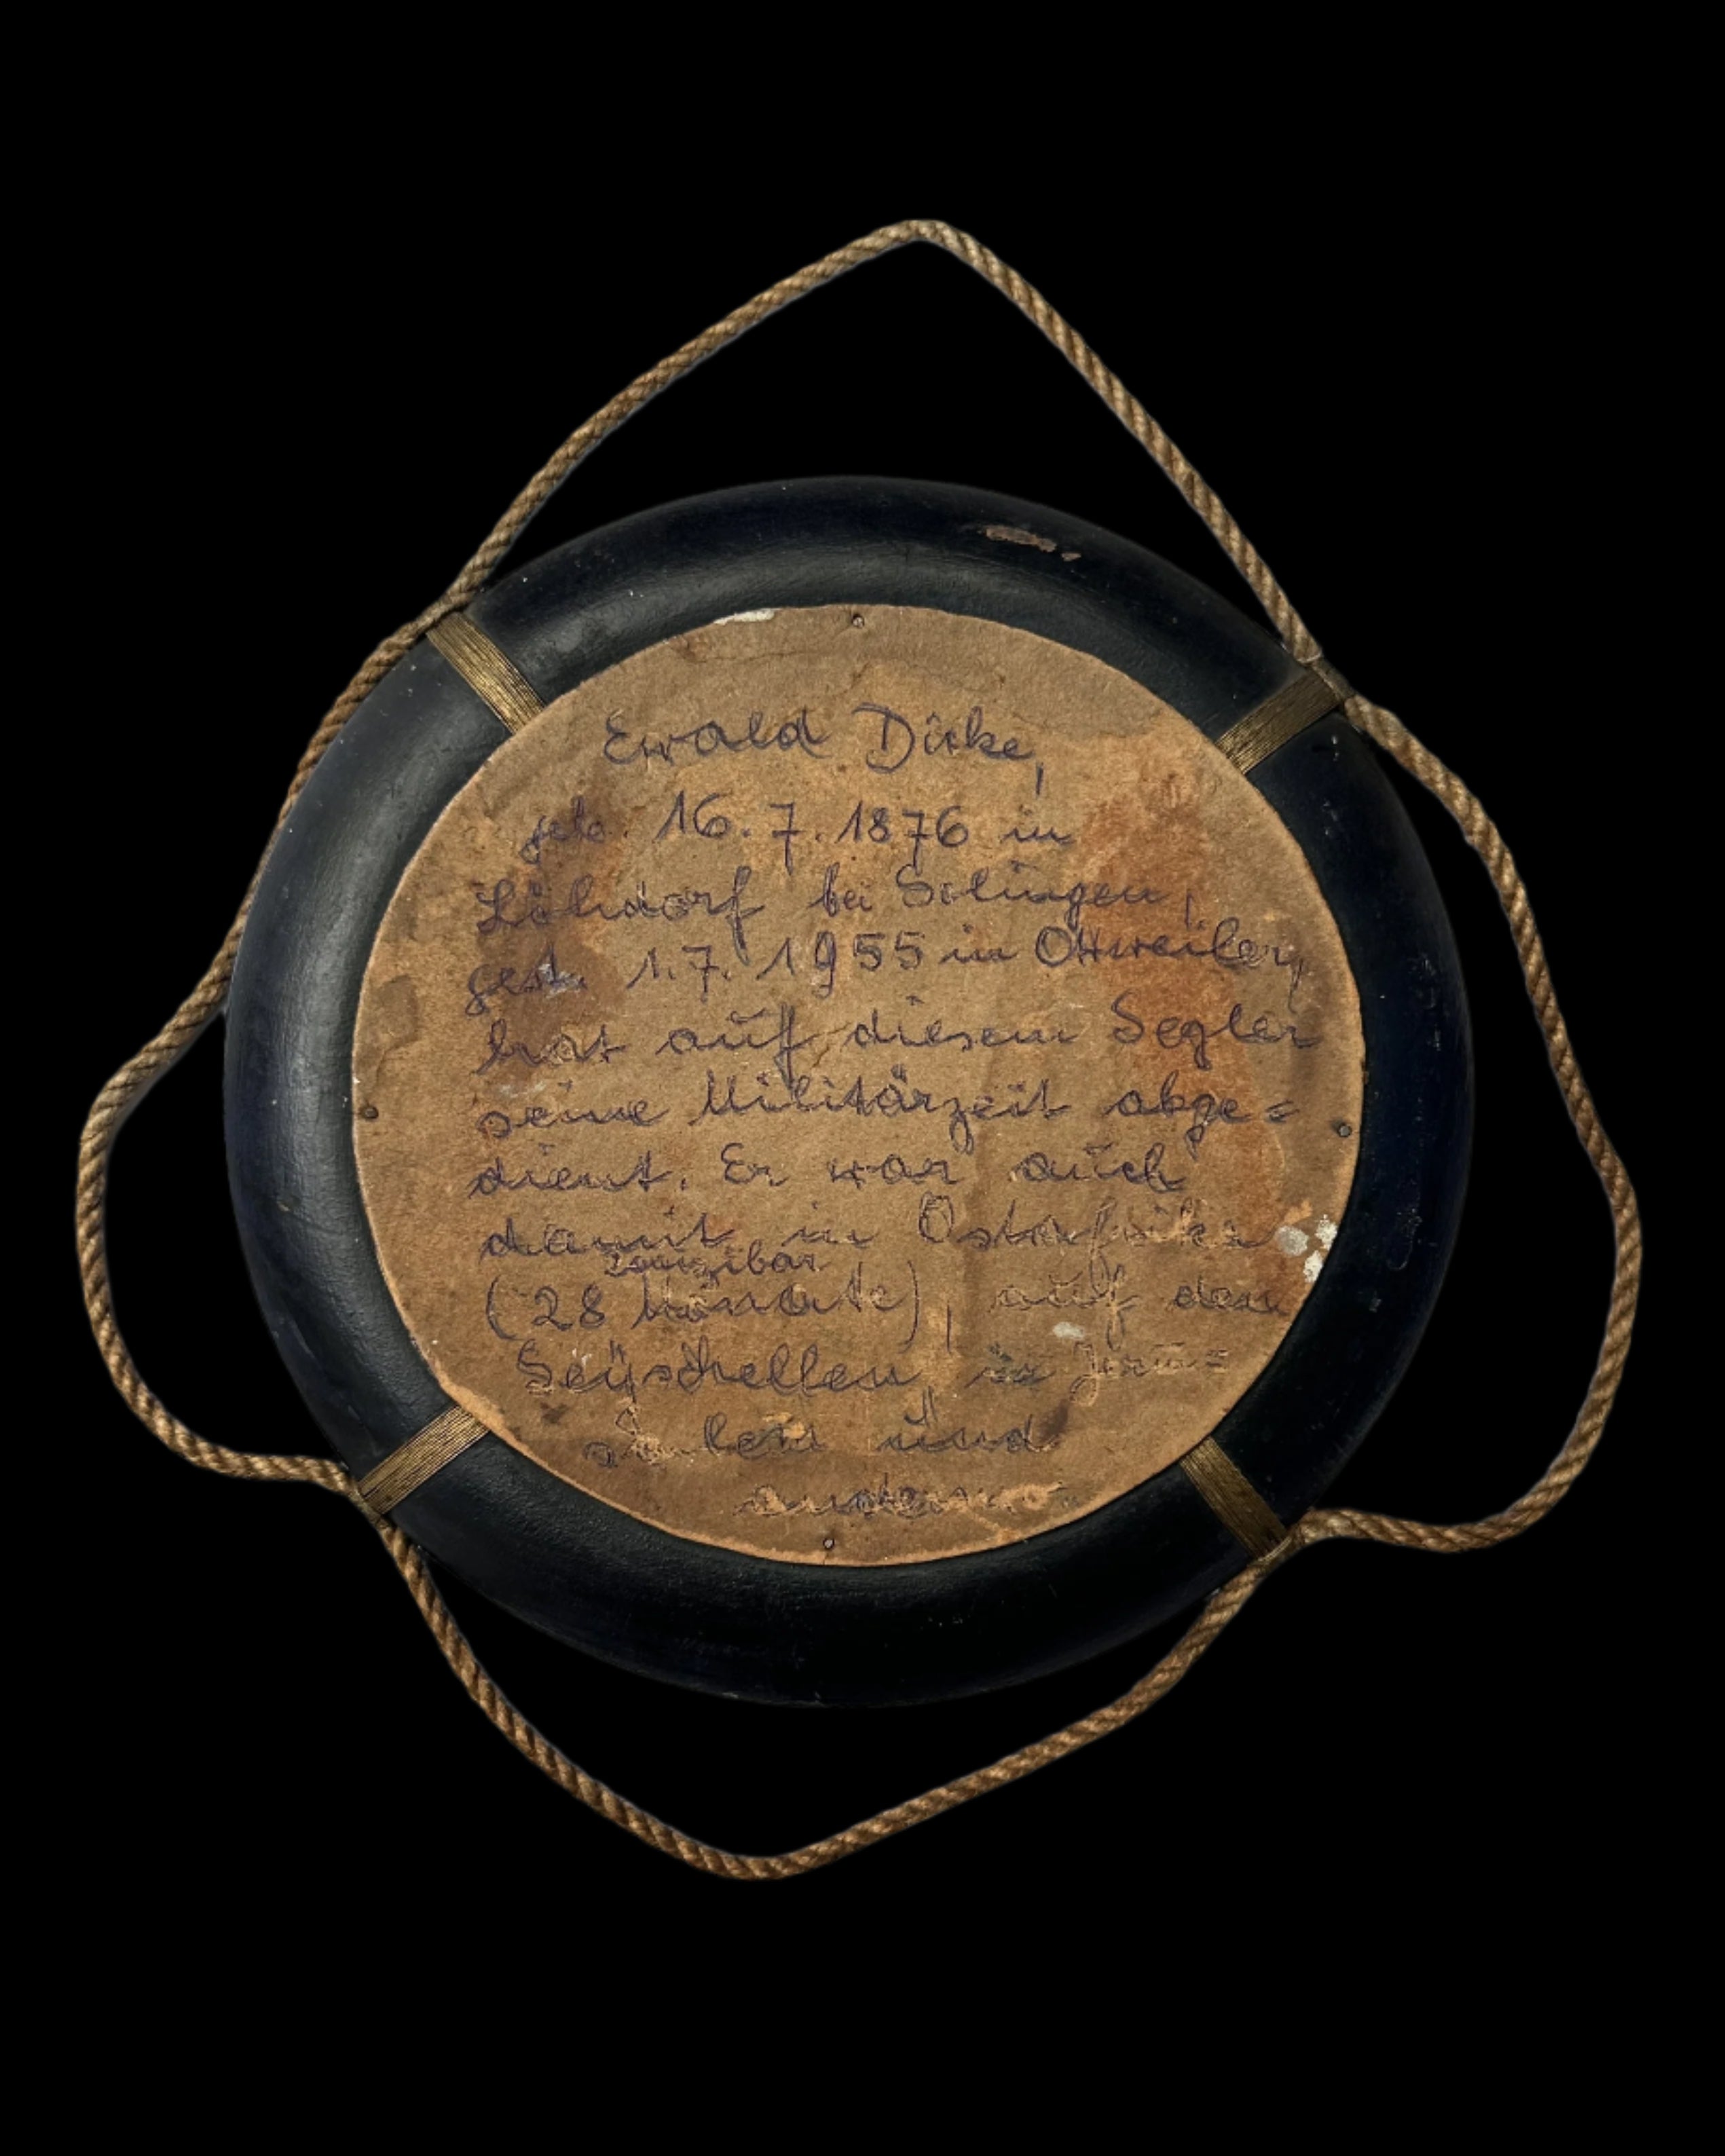 Ewald Dirke,
geb. 16.7.1876 in
Löhdorf bei Solingen,
gest. 1.7.1955 in Ottweiler,
hat auf diesem Segler
seine Militärzeit abge=
dient. Er war auch
damit in Ostafrika
Zanzibar
(28 Monate), auf den
Seyschellen, in Jeru=
salem und
anderswo